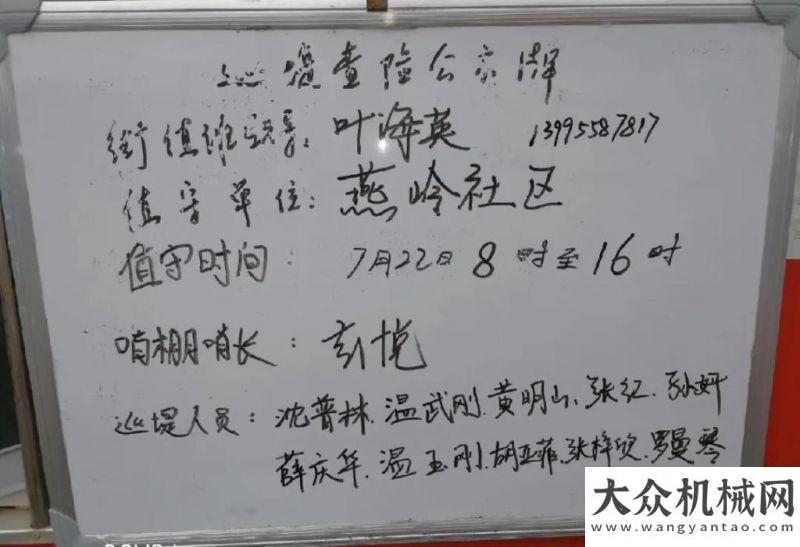 巡堤查险公示牌
街值班领导：叶海英 13995587817
值守单位：燕岭社区
值守时间：7月22日8时至16时
哨棚哨长：彭悦
巡堤人员：沈普林、温武刚、黄明山、张红、孙妍
薛庆华、温玉刚、胡亚菲、张梓欣、罗曼琴
大众机械网
www.wangyantao.com